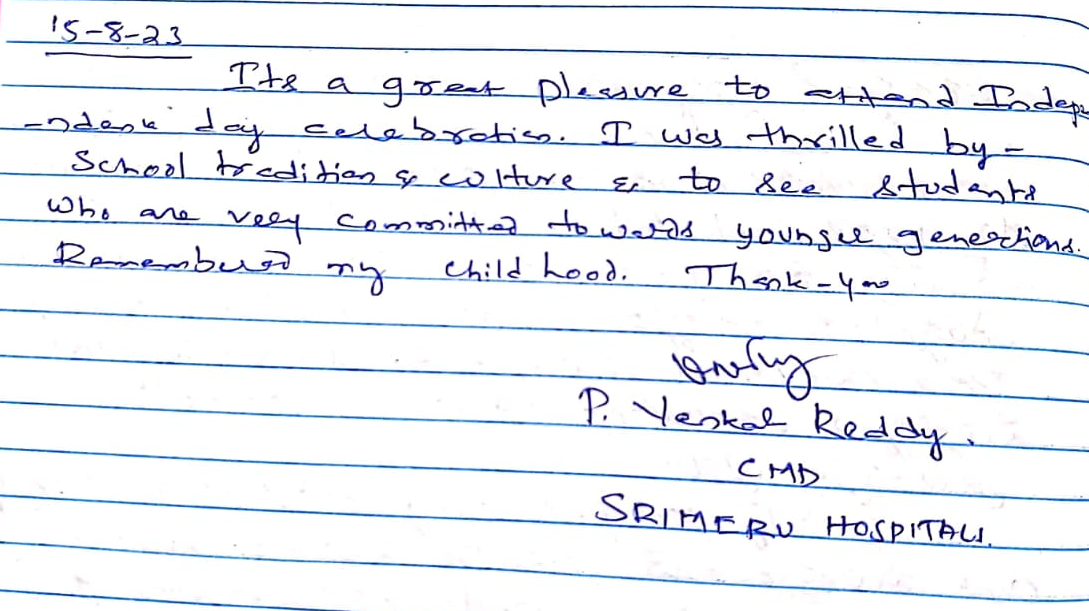 15-8-23
Its a great pleasure to attend Indepe
-ndence day celebration. I was thrilled by -
School tradition & culture & to see students
who are very committed towards younger generations.
Remembered my childhood. Thank-you
P. Venkat Reddy.
CMD
SRIMERU HOSPITALS.